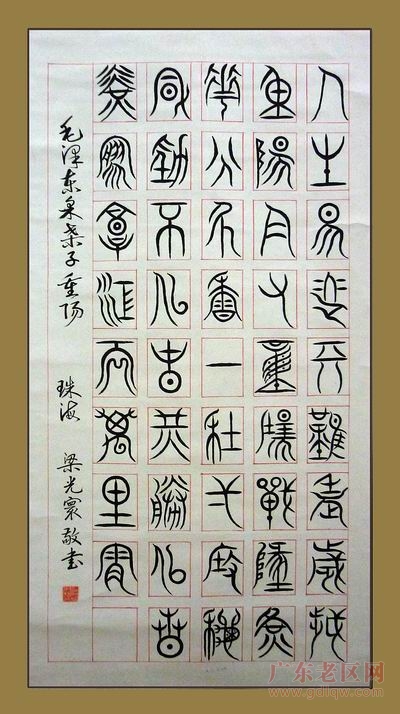 人生易老天難老歲歲
重陽今又重陽戰地黃
花分外香一年一度秋
風勁不似春光勝似春
光寥廓江天萬里霜
毛泽东采桑子重阳
珠海 梁光寰敬书
广东老区网
www.gdlqw.com